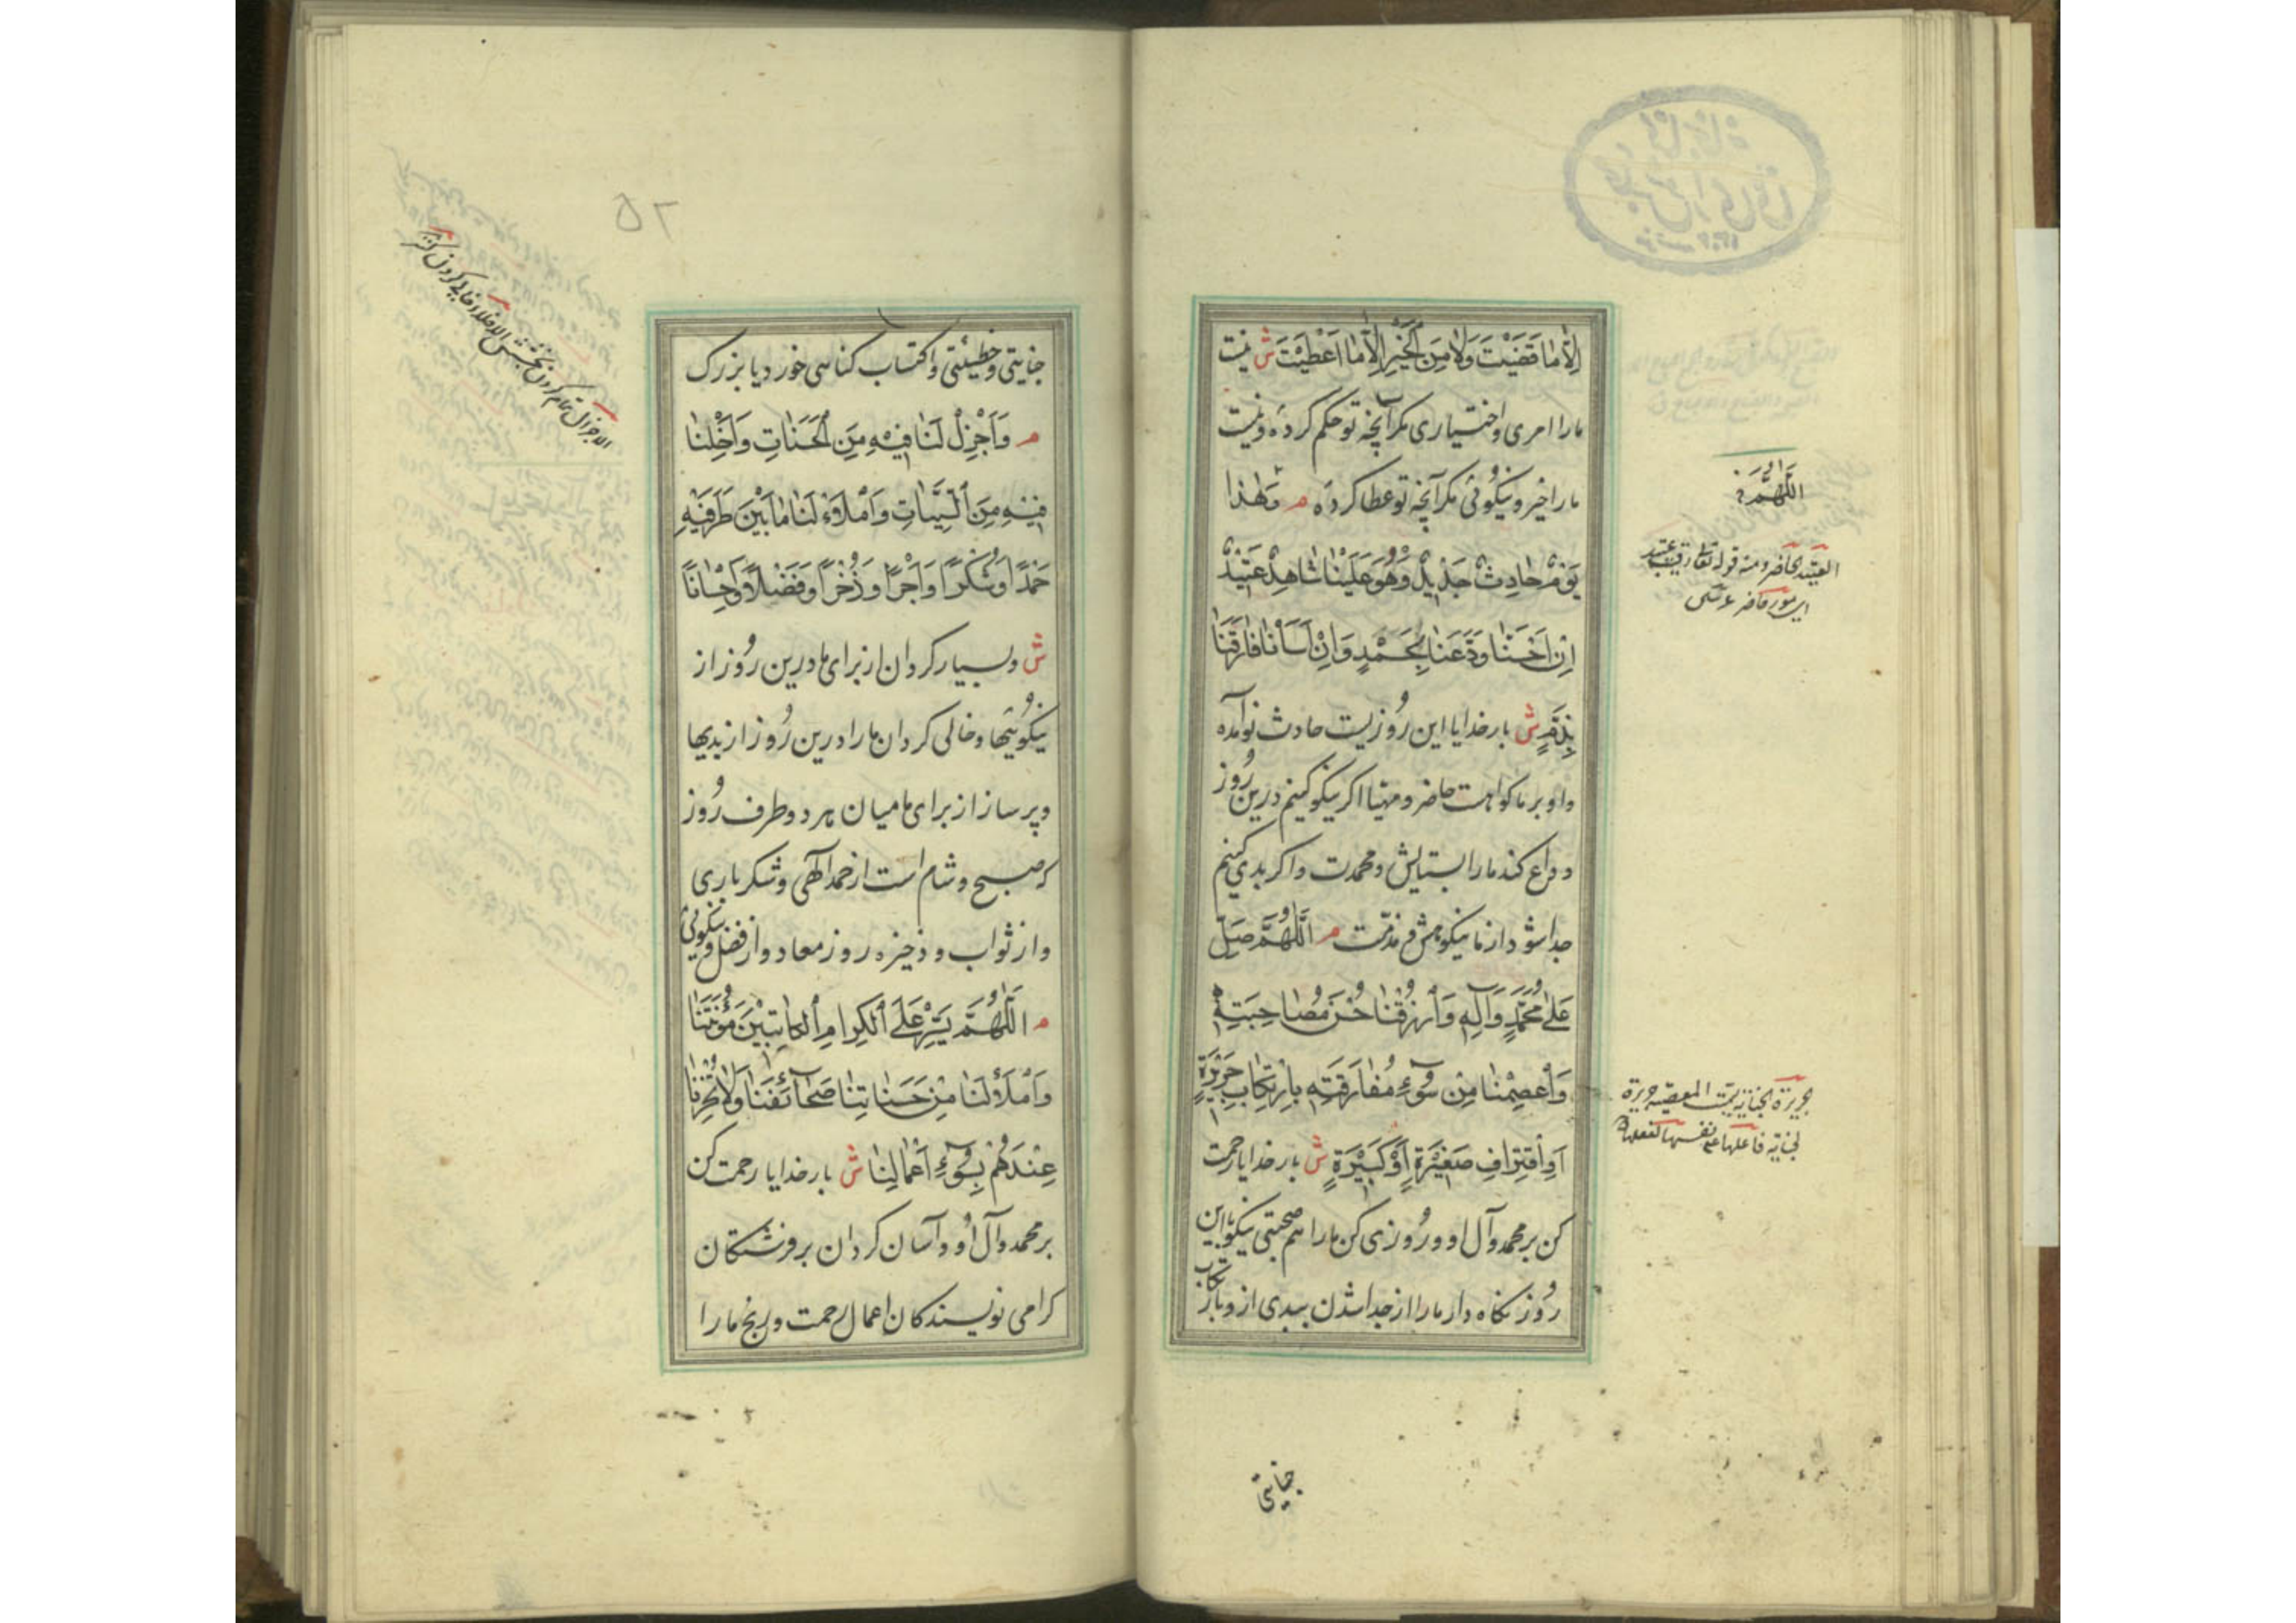 اِلّا مَا قَضَيْتَ وَلَا مِنَ الْخَيْرِ اِلّا مَا اَعْطَيْتَ ش نیست
مارا امری و اختیاری مکر آنچه تو حکم کردهٔ و نیست
مارا خیر و نیکوئی مکر آنچه تو عطا کردهٔ م وَهٰذا
يَوْمٌ حادِثٌ جَدِيدٌ وَهُوَ عَلَيْنا شاهِدٌ عَتِيدٌ
اِنْ اَحْسَنّا وَدَّعَنا بِحَمْدٍ وَاِنْ اَسَأْنا فارَقَنا
بِذَمٍّ ش بار خدایا این رُوزیست حادث نو آمده
و او بر ما کواهست حاضر و مهیّا اکر نیکو کنیم درین رُوز
وداع کند مارا بستایش و محمدت و اکر بدی کنیم
جدا شود از ما بنکوهش و مذمّت م اَللّٰهُمَّ صَلِّ
عَلىٰ مُحَمَّدٍ وَآلِهِ وَارْزُقْنا حُسْنَ مُصاحِبَتِهِ
وَاعْصِمْنا مِنْ سُوءِ مُفارَقَتِهِ بِارْتِكابِ جَرِيرَةٍ
اَوِ اقْتِرافِ صَغِيرَةٍ اَوْ كَبِيرَةٍ ش بار خدایا رحمت
کن بر محمد و آل او و رُوزی کن مارا هم صحبتی نیکو با این
رُوز نکاه دار مارا از جدا شدن ببدی از و بارتکاب
اللّهمّ و
العتید الحاضر و منه قوله تعالی رقیب عتید
جنایتی
٥٢
جنایتی و خطیئتی و اکتساب کناهی خورد یا بزرک
م وَاَجْزِلْ لَنا فِيهِ مِنَ الْحَسَناتِ وَاَخْلِنا
فِيهِ مِنَ السَّيِّئاتِ وَامْلَأْ لَنا ما بَيْنَ طَرَفَيْهِ
حَمْدًا وَشُكْرًا وَاَجْرًا وَذُخْرًا وَفَضْلًا وَاِحْسانًا
ش و بسیار کردان از برای ما درین رُوز از
نیکوئیها و خالی کردان مارا درین رُوز از بدیها
و پر ساز از برای ما میان هر دو طرف رُوز
که صبح و شام است از حمد الٓهی و شکر باری
و از ثواب و ذخیره روز معاد و از فضل و نیکوئی
م اَللّٰهُمَّ يَسِّرْ عَلَى الْكِرامِ الْكاتِبِينَ مَؤُنَتَنا
وَامْلَأْ لَنا مِنْ حَسَناتِنا صَحآئِفَنا وَلا تُخْزِنا
عِنْدَهُمْ بِسُوءِ اَعْمالِنا ش بار خدایا رحمت کن
بر محمد و آل او و آسان کردان بر فرشتکان
کرامی نویسندکان اعمال زحمت و رنج مارا